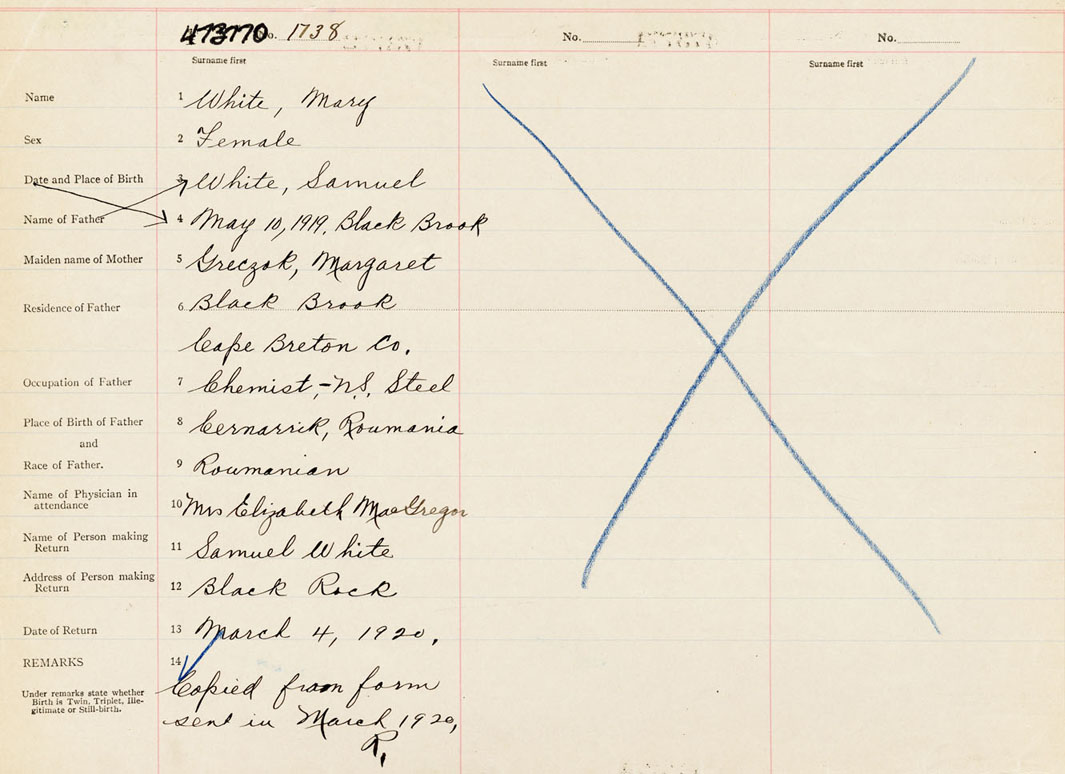 473770 No. 1738 No. No.
Surname first Surname first Surname first
Name 1 White, Mary
Sex 2 Female
Date and Place of Birth 3 White, Samuel
Name of Father 4 May 10, 1919, Black Brook
Maiden name of Mother 5 Greczok, Margaret
Residence of Father 6 Black Brook
Cape Breton Co.
Occupation of Father 7 Chemist,-N.S. Steel
Place of Birth of Father 8 Cernarrik, Roumania
and
Race of Father. 9 Roumanian
Name of Physician in
attendance 10 Mrs Elizabeth MacGregor
Name of Person making
Return 11 Samuel White
Address of Person making
Return 12 Black Rock
Date of Return 13 March 4, 1920.
REMARKS 14
Under remarks state whether
Birth is Twin, Triplet, Ille-
gitimate or Still-birth.
Copied from form
sent in March 1920,
R.